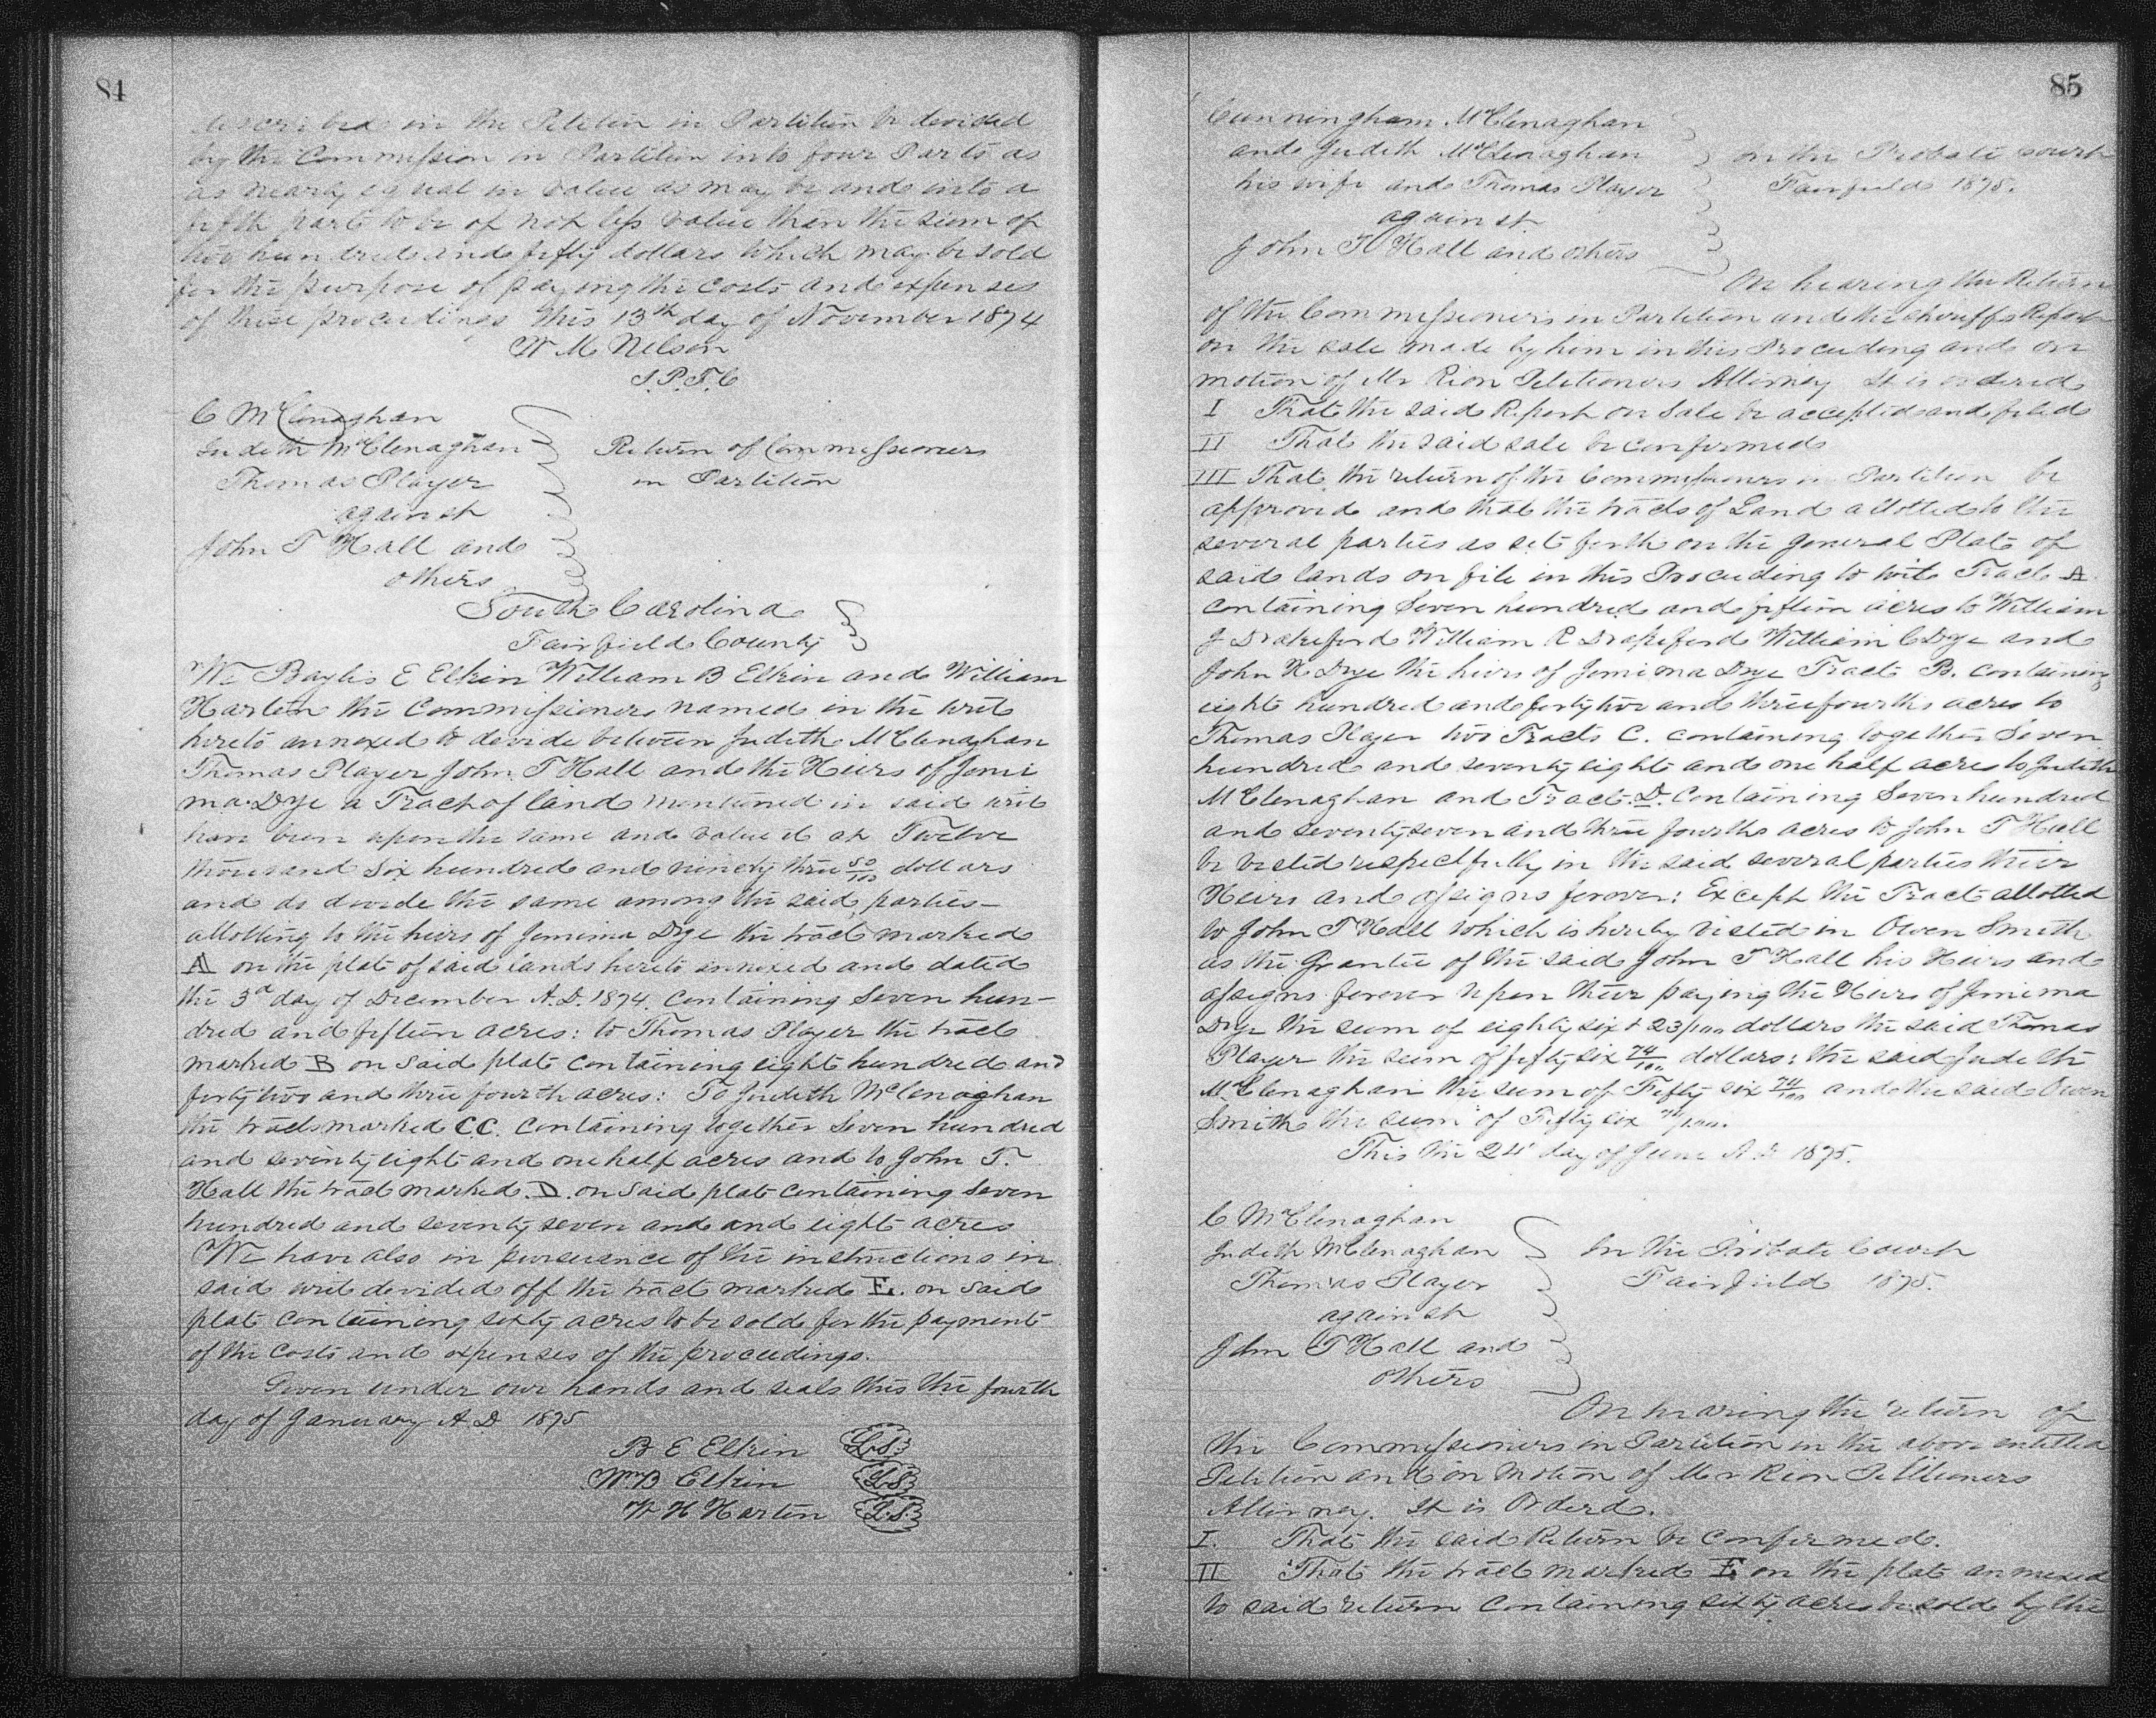 84
described in the Petition in Partition be devided
by the Commission in Partition into four Parts as
as nearly equal in value as may be and into a
fifth part to be of not less value than the sum of
two hundred and fifty dollars which may be sold
for the purpose of paying the costs and expenses
of these proceedings this 13th day of November 1874
W M Nelson
J.P.F.C
C McClenaghan
Judith McClenaghan
Thomas Player
against
John T Hall and
others
Return of Commissioners
in Partition
South Carolina
Fairfield County
We Baylis E Elkin William B Elkin and William
Harten the Commissioners named in the writ
hereto annexed to devide between Judith McClenaghan
Thomas Player John T Hall and the Heirs of Jemi
ma Dye a Tract of land mentioned in said writ
have been upon the same and value it at Twelve
thousand Six hundred and ninety three 50/100 dollars
and do devide the same among the said parties-
allotting to the heirs of Jemima Dye the tract marked
A on the plat of said lands hereto annexed and dated
the 3d day of December A.D. 1874. Containing Seven hun-
dred and fifteen acres: to Thomas Player the tract
marked B on said plat containing eight hundred and
forty two and three fourth acres: To Judith McClenaghan
the tracts marked C.C. Containing together Seven hundred
and seventy eight and one half acres and to John T.
Hall the tract marked D. on said plat containing Seven
hundred and seventy seven and and eight acres
We have also in pursuance of the instructions in
said writ devided off the tract marked E. on said
plat containing sixty acres to be sold for the payment
of the costs and expenses of the proceedings.
Given under our hands and seals this the fourth
day of January A D 1875
B E Elkin L.S.
Wm B Elkin L.S.
W H Harten L.S.
85
Cunningham McClenaghan
and Judith McClenaghan
his wife and Thomas Player
against
John T Hall and others
In the Probate court
Fairfield 1875.
On hearing the Return
of the Commissioners in Partition and the sheriffs Report
on the sale made by him in this Proceeding and on
motion of Mr Rion Petitioners Attorney It is ordered
I That the said Report on Sale be accepted and filed
II That the said sale be confirmed
III That the return of the Commissioners in Partition be
approved and that the tracts of Land allotted to the
several parties as set forth on the general Plat of
said lands on file in this Proceeding to wit Tract A.
containing Seven hundred and fifteen acres to William
J Drakeford William R Drakeford William C Dye and
John H Dye the heirs of Jemima Dye Tract B. containing
eight hundred and forty two and three fourths acres to
Thomas Player two Tracts C. containing together Seven
hundred and seventy eight and one half acres to Judith
McClenaghan and Tract D. Containing Seven hundred
and seventy seven and three fourths acres to John T Hall
be vested respectfully in the said several parties their
Heirs and assigns forever: Except the Tract allotted
to John T Hall which is hereby vested in Owen Smith
as the Grantee of the said John T Hall his Heirs and
assigns forever upon their paying the Heirs of Jemima
Dye the sum of eighty six & 23/100 dollars the said Thomas
Player the sum of fifty six 74/100 dollars: the said Judith
McClenaghan the sum of Fifty six 74/100 and the said Owen
Smith the sum of Fifty six 74/100.
This the 24 day of June A.D. 1875.
C McClenaghan
Judith McClenaghan
Thomas Player
against
John T Hall and
Others
In the Probate Court
Fairfield 1875.
On hearing the return of
the Commissioners in Partition in the above entitled
Petition and on motion of Mr Rion Petitioners
Attorney. It is Orderd.
I. That the said Return be confirmed.
II That the tract marked E on the plat annexed
to said return Containing sixty acres be sold by the